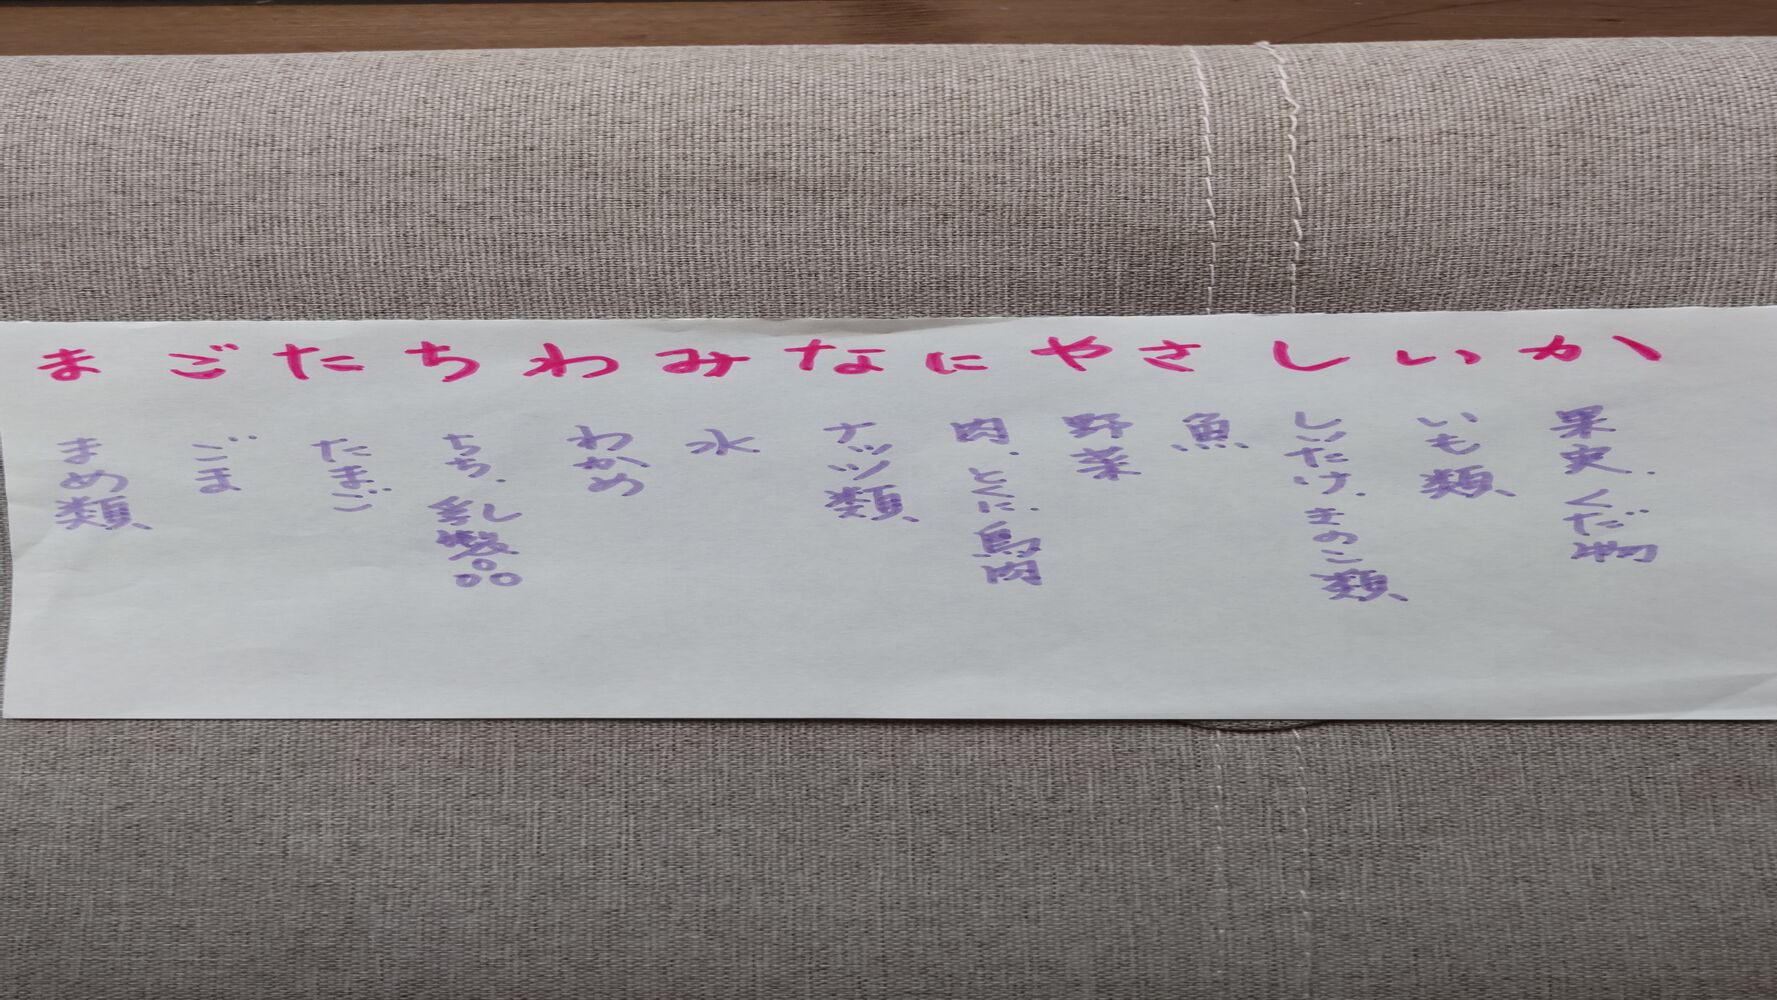 まごたちわみなにやさしいか
まめ類、
ごま
たまご
ちち、乳製品
わかめ
水
ナッツ類、
肉、とくに、鳥肉
野菜
魚、
しいたけ、きのこ類、
いも類、
果実、くだ物